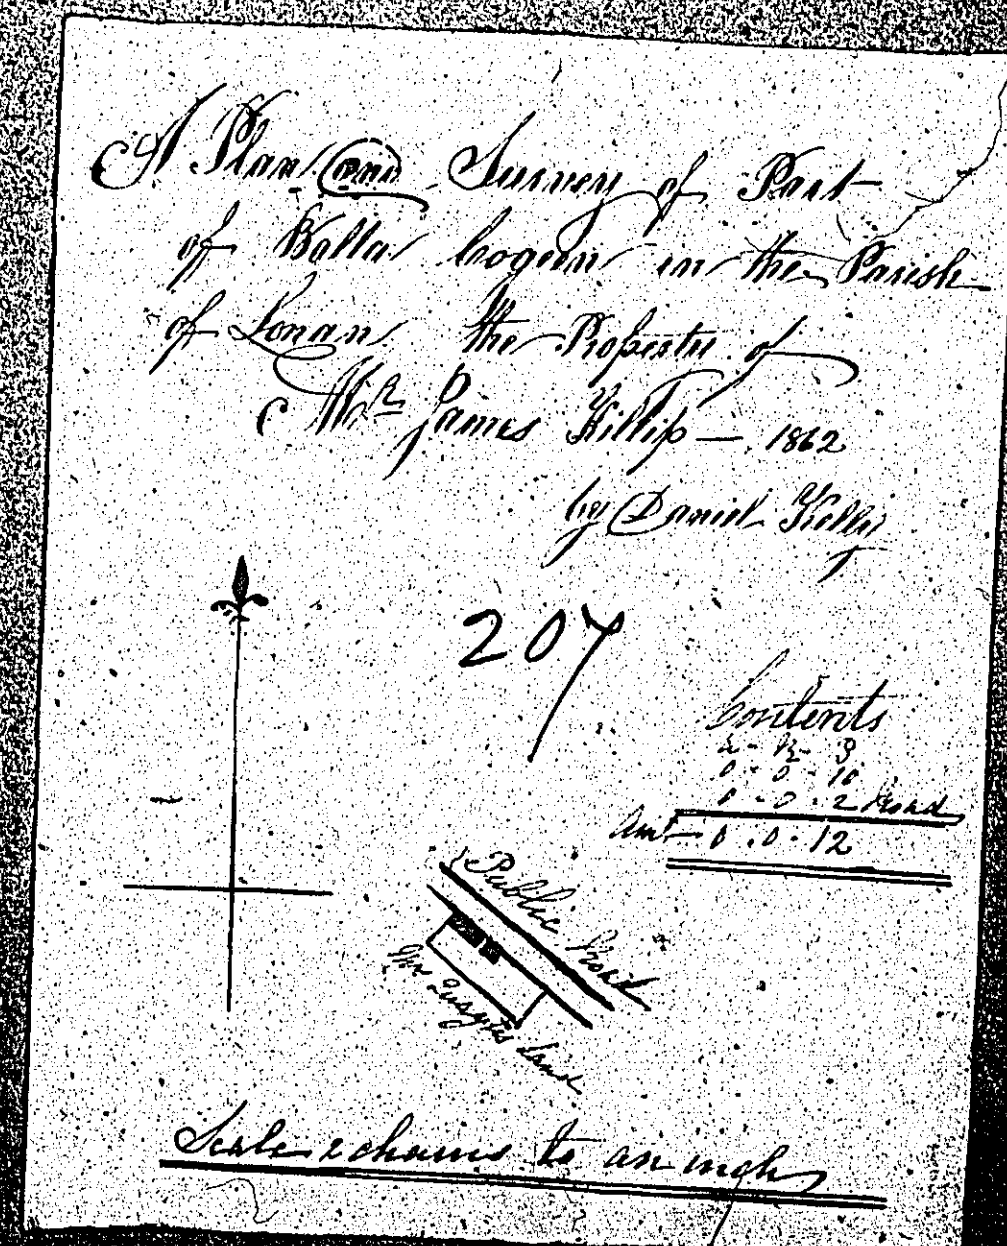 A Plan and Survey of Part
of Balla cogeen in the Parish
of Lonan the Property of
Mr James Killip — 1862
by Daniel Kelly
207
Contents
A - R - P
0 - 0 - 10
0 - 0 - 2 Road
Amt 0 . 0 . 12
Public Road
Mr Quayles Land
Scale 2 chains to an inch